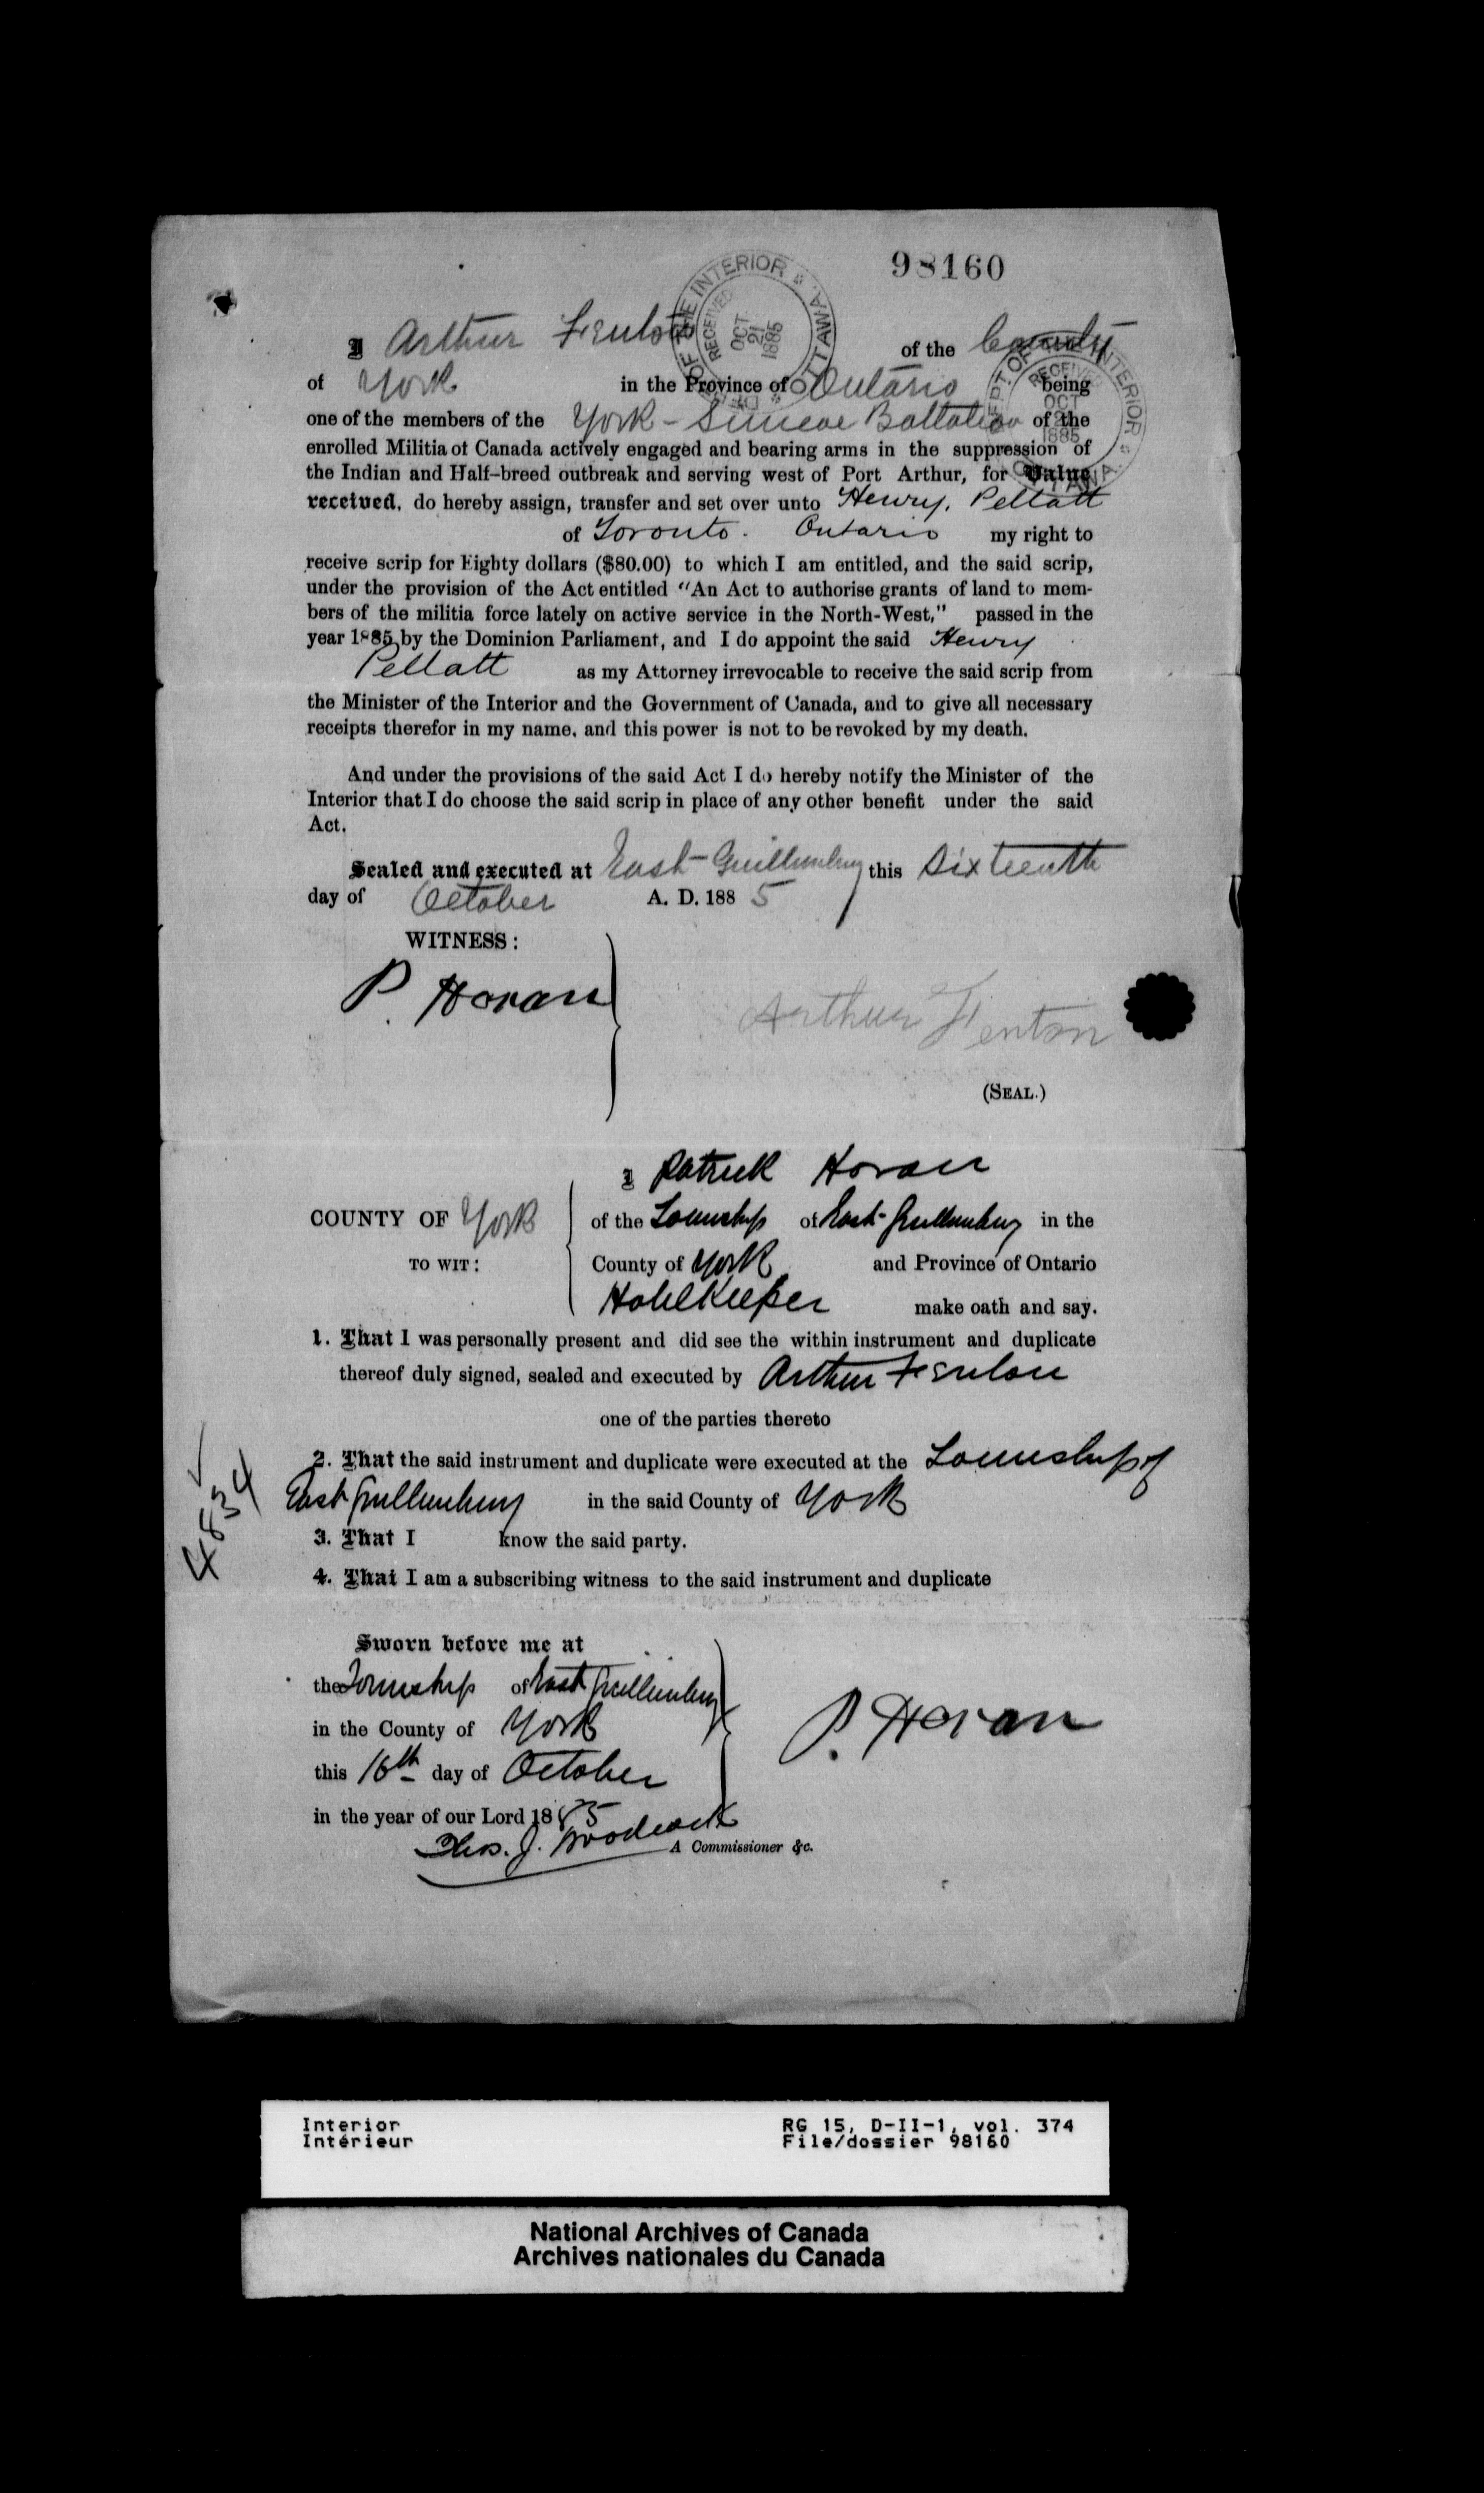 98160
DEPT. OF THE INTERIOR OTTAWA
RECEIVED
OCT
21
1885
I Arthur Fenton of the County
DEPT. OF THE INTERIOR OTTAWA
RECEIVED
OCT
1885
of York in the Province of Ontario being
one of the members of the York-Simcoe Battalion of the
enrolled Militia of Canada actively engaged and bearing arms in the suppression of
the Indian and Half-breed outbreak and serving west of Port Arthur, for Value
received, do hereby assign, transfer and set over unto Henry. Pellatt
of Toronto. Ontario my right to
receive scrip for Eighty dollars ($80.00) to which I am entitled, and the said scrip,
under the provision of the Act entitled "An Act to authorise grants of land to mem-
bers of the militia force lately on active service in the North-West," passed in the
year 1885, by the Dominion Parliament, and I do appoint the said Henry
Pellatt as my Attorney irrevocable to receive the said scrip from
the Minister of the Interior and the Government of Canada, and to give all necessary
receipts therefor in my name, and this power is not to be revoked by my death.
And under the provisions of the said Act I do hereby notify the Minister of the
Interior that I do choose the said scrip in place of any other benefit under the said
Act.
Sealed and executed at East Gwillimbury this Sixteenth
day of October A. D. 188 5
WITNESS:
P. Horan
Arthur Fenton
(SEAL.)
I Patrick Horan
COUNTY OF York of the Township of East Gwillimbury in the
TO WIT: County of York and Province of Ontario
Hotel Keeper make oath and say.
1. That I was personally present and did see the within instrument and duplicate
thereof duly signed, sealed and executed by Arthur Fenton
one of the parties thereto
2. That the said instrument and duplicate were executed at the Township of
East Gwillimbury in the said County of York
3. That I know the said party.
4. That I am a subscribing witness to the said instrument and duplicate
4834
Sworn before me at
the Township of East Gwillimbury
in the County of York
this 16th day of October
in the year of our Lord 1885
P. Horan
Thos. J. Woodcock
A Commissioner &c.
Interior RG 15, D-II-1, vol. 374
Intérieur File/dossier 98160
National Archives of Canada
Archives nationales du Canada